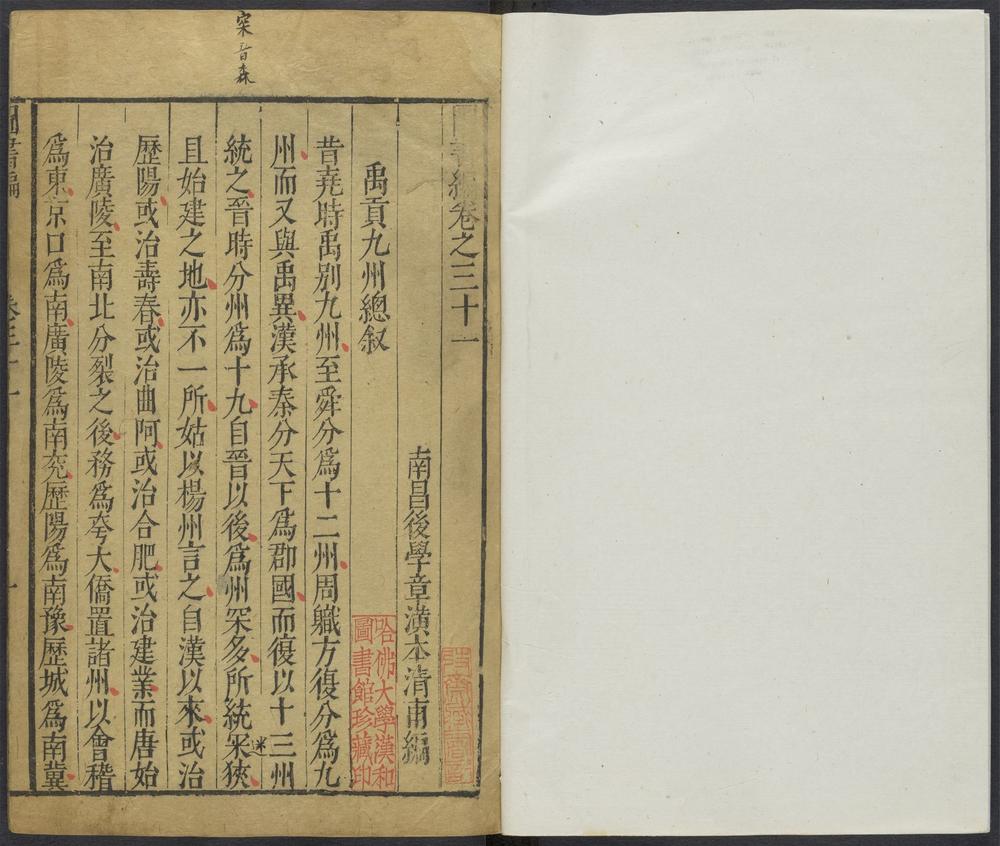 圖書編卷之三十一
南昌後學章潢本清甫編
禹貢九州總叙
昔堯時禹别九州至舜分爲十二州周職方復分爲九
州而又與禹異漢承秦分天下爲郡國而復以十三州
統之晉時分州爲十九自晉以後爲州罙多所統罙狹
且始建之地亦不一所姑以楊州言之自漢以來或治
歷陽或治壽春或治曲阿或治合肥或治建業而唐始
治廣陵至南北分裂之後務爲夸大僑置諸州以會稽
爲東京口爲南廣陵爲南兖歷陽爲南豫歷城爲南冀
圖書編
卷三十一
一
罙音森
迷
哈佛大學漢和
圖書館珍藏印